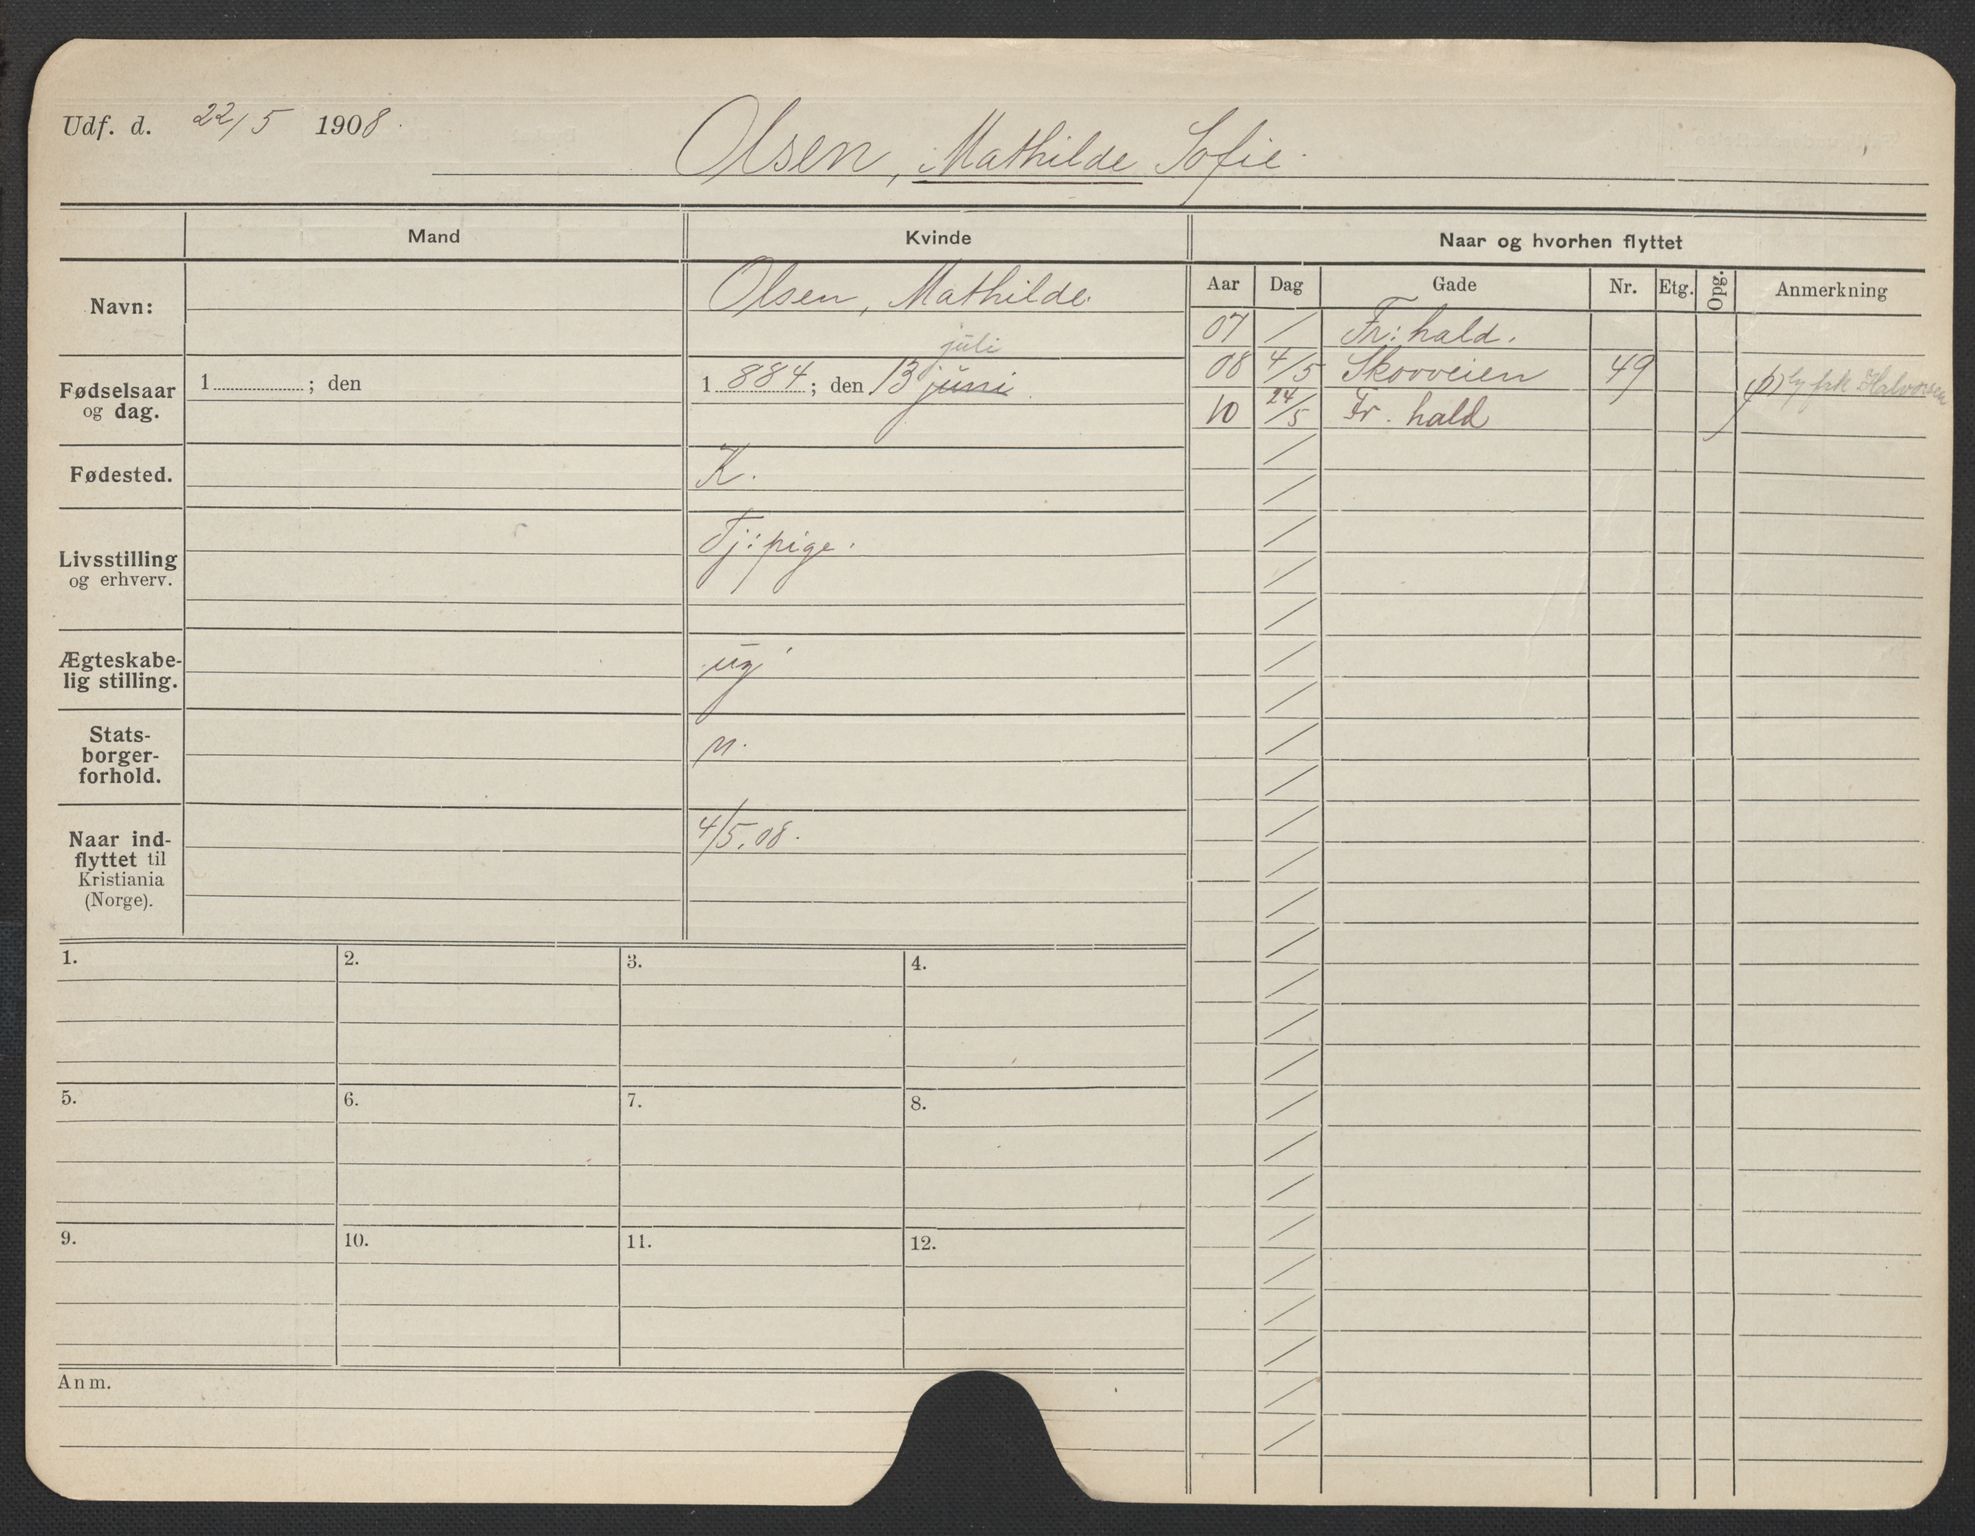 Udf. d. 22/5 1908.
Olsen, Mathilde Sofie.
Mand
Kvinde
Naar og hvorhen flyttet
Navn:
Olsen, Mathilde.
Fødselsaar
og dag.
1 ; den
juli
1 884 ; den 13 juni
Fødested.
K.
Livsstilling
og erhverv.
Tj: pige.
Ægteskabe-
lig stilling.
ug
Stats-
borger-
forhold.
n.
Naar ind-
flyttet til
Kristiania
(Norge).
4/5.08.
Aar Dag Gade Nr. Etg. Opg. Anmerkning
07 / Fr: hald.
08 4/5 Skovveien 49 frk Halvorsen
10 24/5 Fr. hald
1. 2. 3. 4.
5. 6. 7. 8.
9. 10. 11. 12.
Anm.